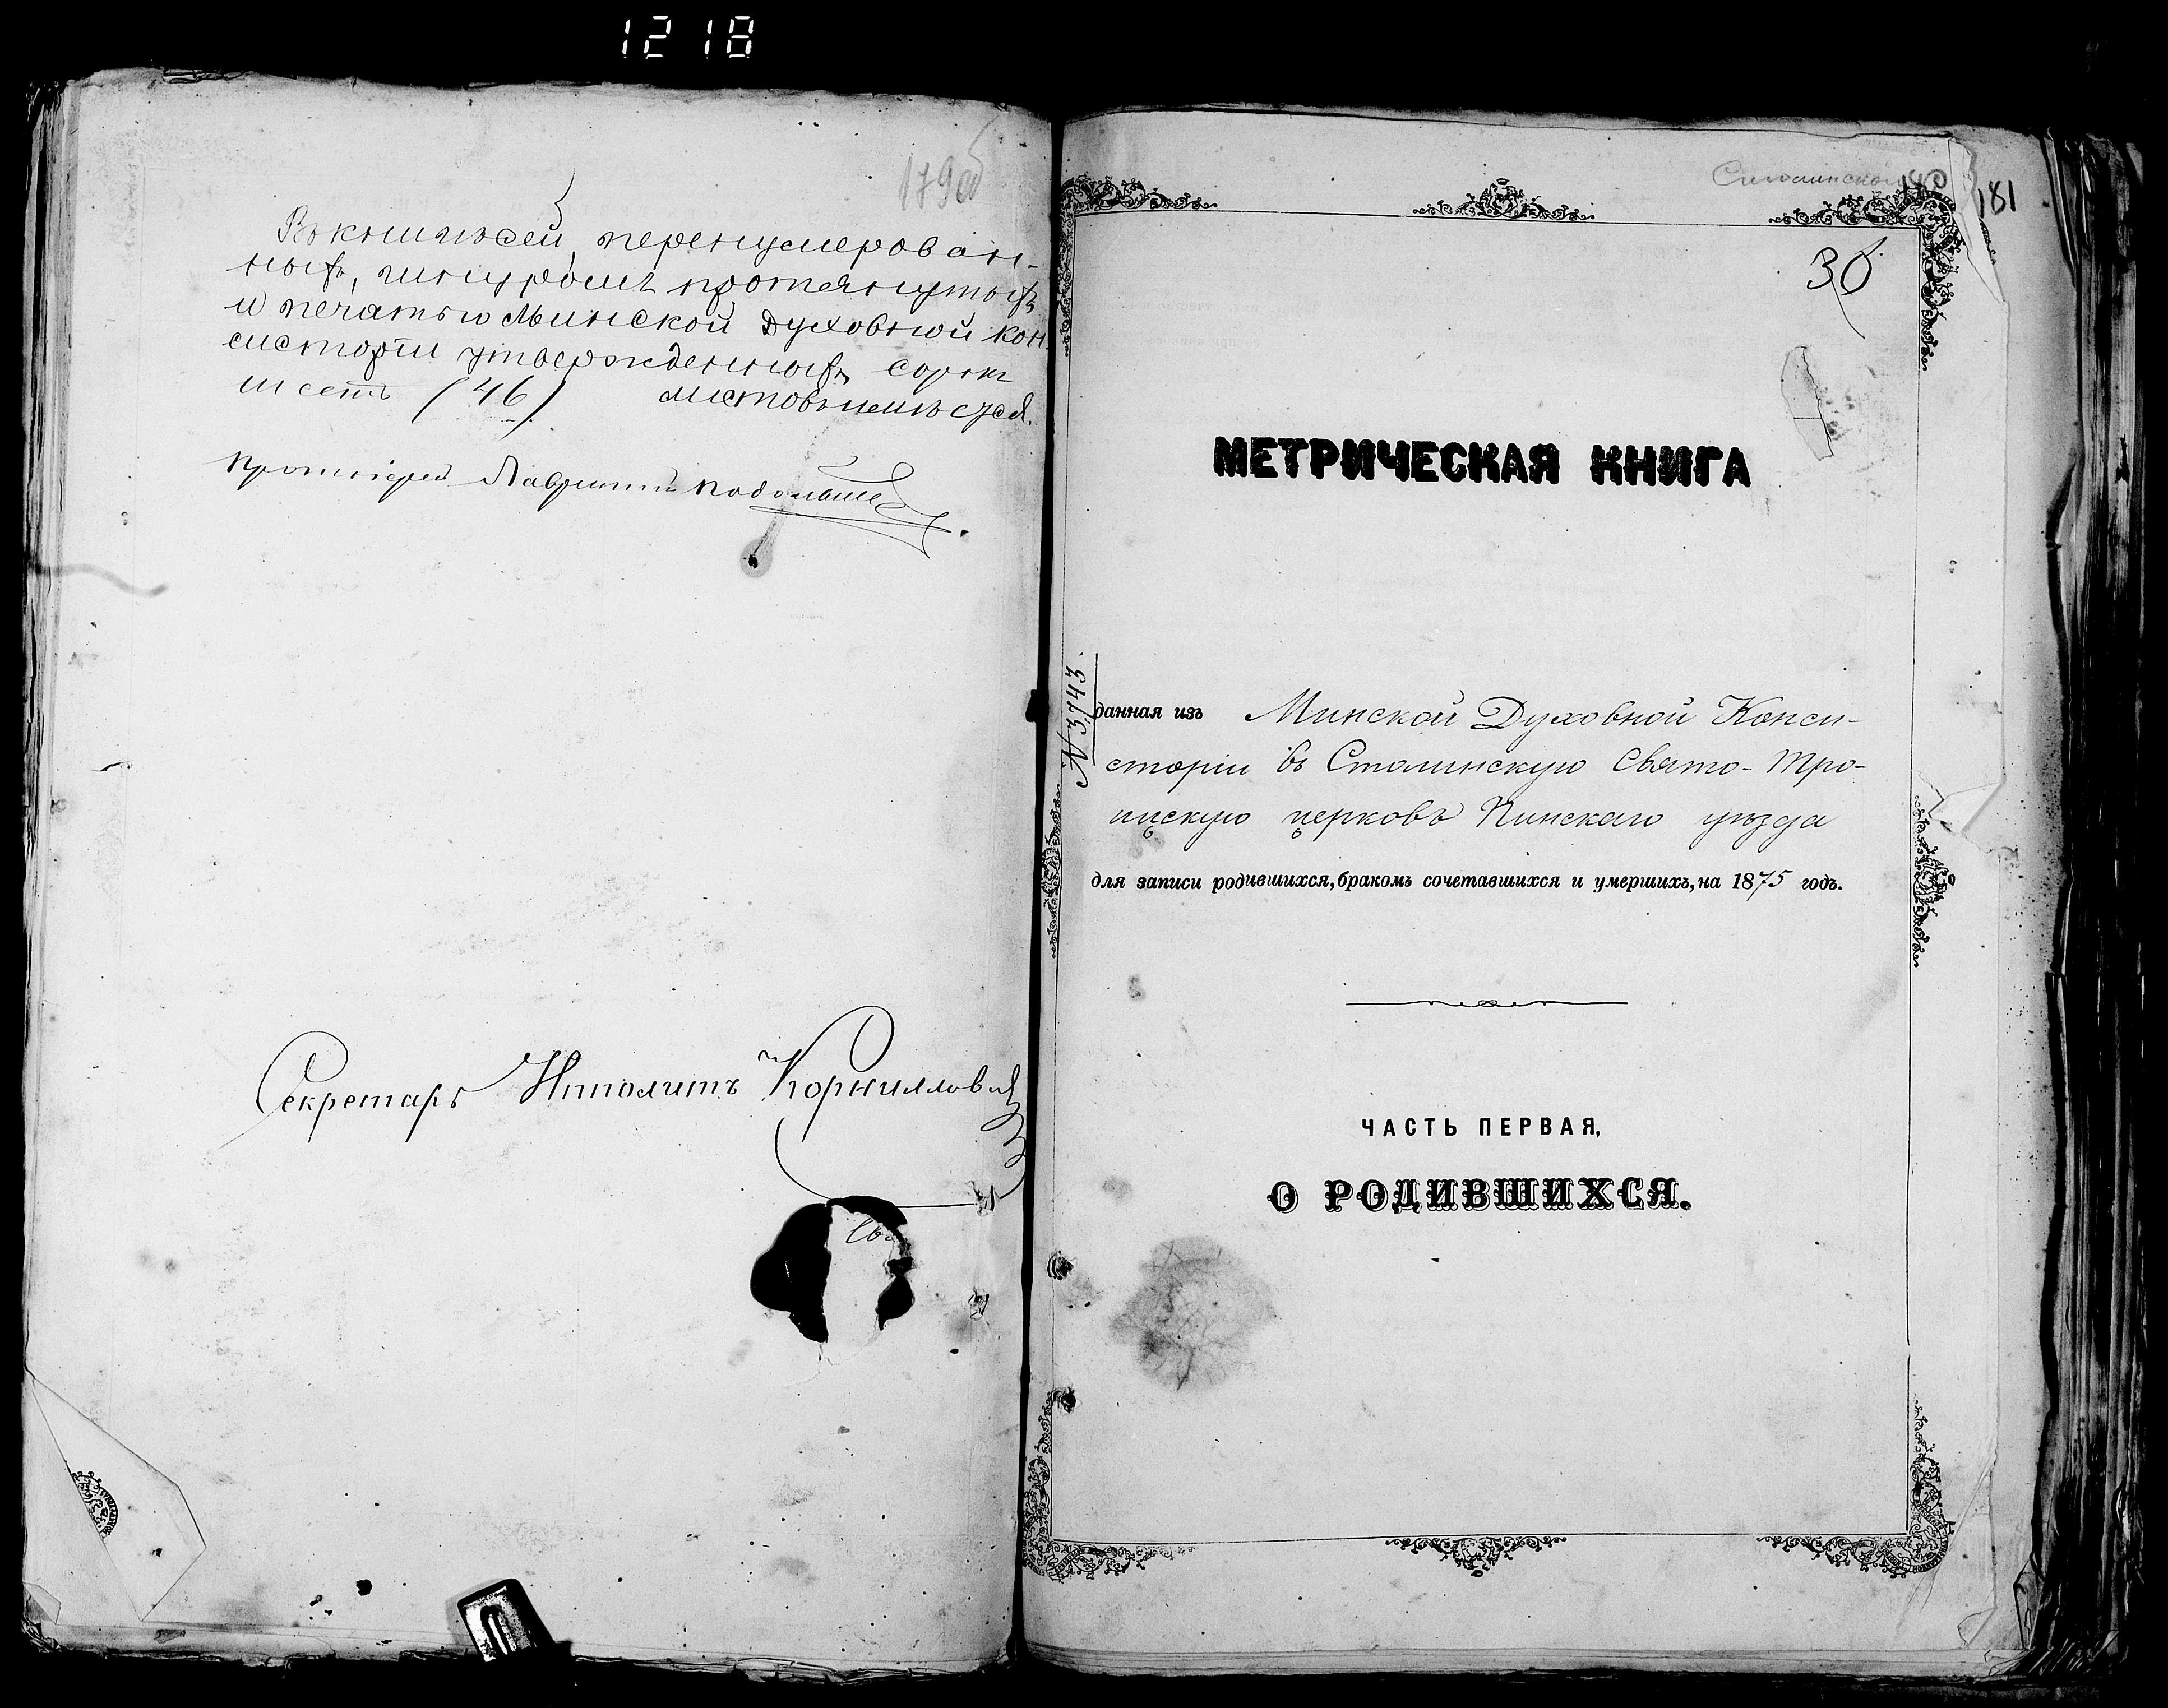 1218
179об
Въ книгѣ сей, перенумерован-
ныхъ, шнуромъ протянутыхъ
и печатью Минской Духовной Кон
систоріи утвержденныхъ сорок
шесть (46) листовъ имѣется.
Протоіерей Лаврентій Подольшев
Секретарь Ипполитъ Корнилловъ
Столинской 180
181
30
МЕТРИЧЕСКАЯ КНИГА
№ 3,743.
данная изъ Минской Духовной Конси-
сторіи въ Столинскую Свято-Тро-
ицкую церковь Пинскаго уѣзда
для записи родившихся, бракомъ сочетавшихся и умершихъ, на 1875 годъ.
ЧАСТЬ ПЕРВАЯ,
О РОДИВШИХСЯ.